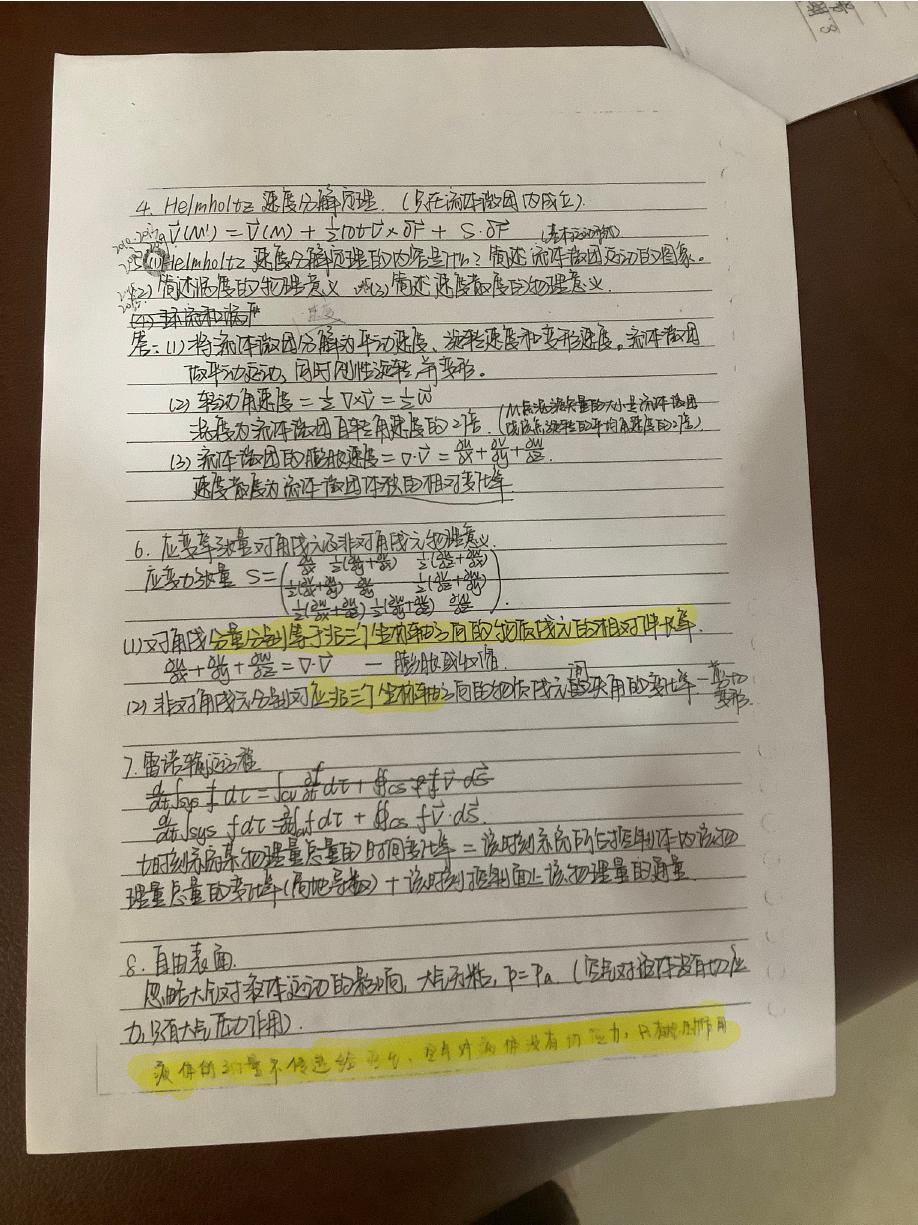 4. Helmholtz 速度分解定理. (只在流体微团内成立).
V⃗(M') = V⃗(M) + ½rotV⃗×δr⃗ + S·δr⃗
(1) Helmholtz 速度分解定理的内容是什么? 简述流体微团运动的图象。
(2) 简述涡度的物理意义 (3) 简述速度散度的物理意义.
答: (1) 将流体微团分解为平动速度、旋转速度和变形速度。流体微团
做平动运动, 同时刚性旋转并变形。
(2) 转动角速度 = ½∇×V⃗ = ½ω⃗
涡度为流体微团自转角速度的2倍. (M点涡旋矢量的大小是流体微团
绕该点旋转的平均角速度的2倍)
(3) 流体微团的膨胀速度 = ∇·V⃗ = ∂u/∂x + ∂v/∂y + ∂w/∂z.
速度散度为流体微团体积的相对变化率
6. 应变率张量对角线元及非对角线元物理意义.
应变力张量 S = ( ∂u/∂x ½(∂u/∂y+∂v/∂x) ½(∂u/∂z+∂w/∂x)
½(∂v/∂x+∂u/∂y) ∂v/∂y ½(∂v/∂z+∂w/∂y)
½(∂w/∂x+∂u/∂z) ½(∂w/∂y+∂v/∂z) ∂w/∂z ).
(1) 对角线分量分别等于沿三个坐标轴方向的物质线元的相对伸长率.
∂u/∂x + ∂v/∂y + ∂w/∂z = ∇·V⃗ — 膨胀或收缩.
(2) 非对角线元分别对应沿三个坐标轴方向的物质线元间夹角的变化率 — 剪切
变形.
7. 雷诺输运方程
d/dt∫sys f dτ = ∫cv ∂f/∂t dτ + ∯cs f V⃗·dS⃗
d/dt∫sys f dτ = ∂/∂t∫cv f dτ + ∯cs f V⃗·dS⃗.
t时刻系统某物理量总量的时间变化率 = 该时刻系统所占控制体内该物
理量总量的变化率(局地导数) + 该时刻控制面上该物理量的通量.
8. 自由表面.
忽略大气对液体运动的影响, 大气无粘, p = pa. (空气对液体没有切应
力, 只有大气压力作用).
液体的动量不传递给空气, 空气对液体没有切应力, 只有压力作用